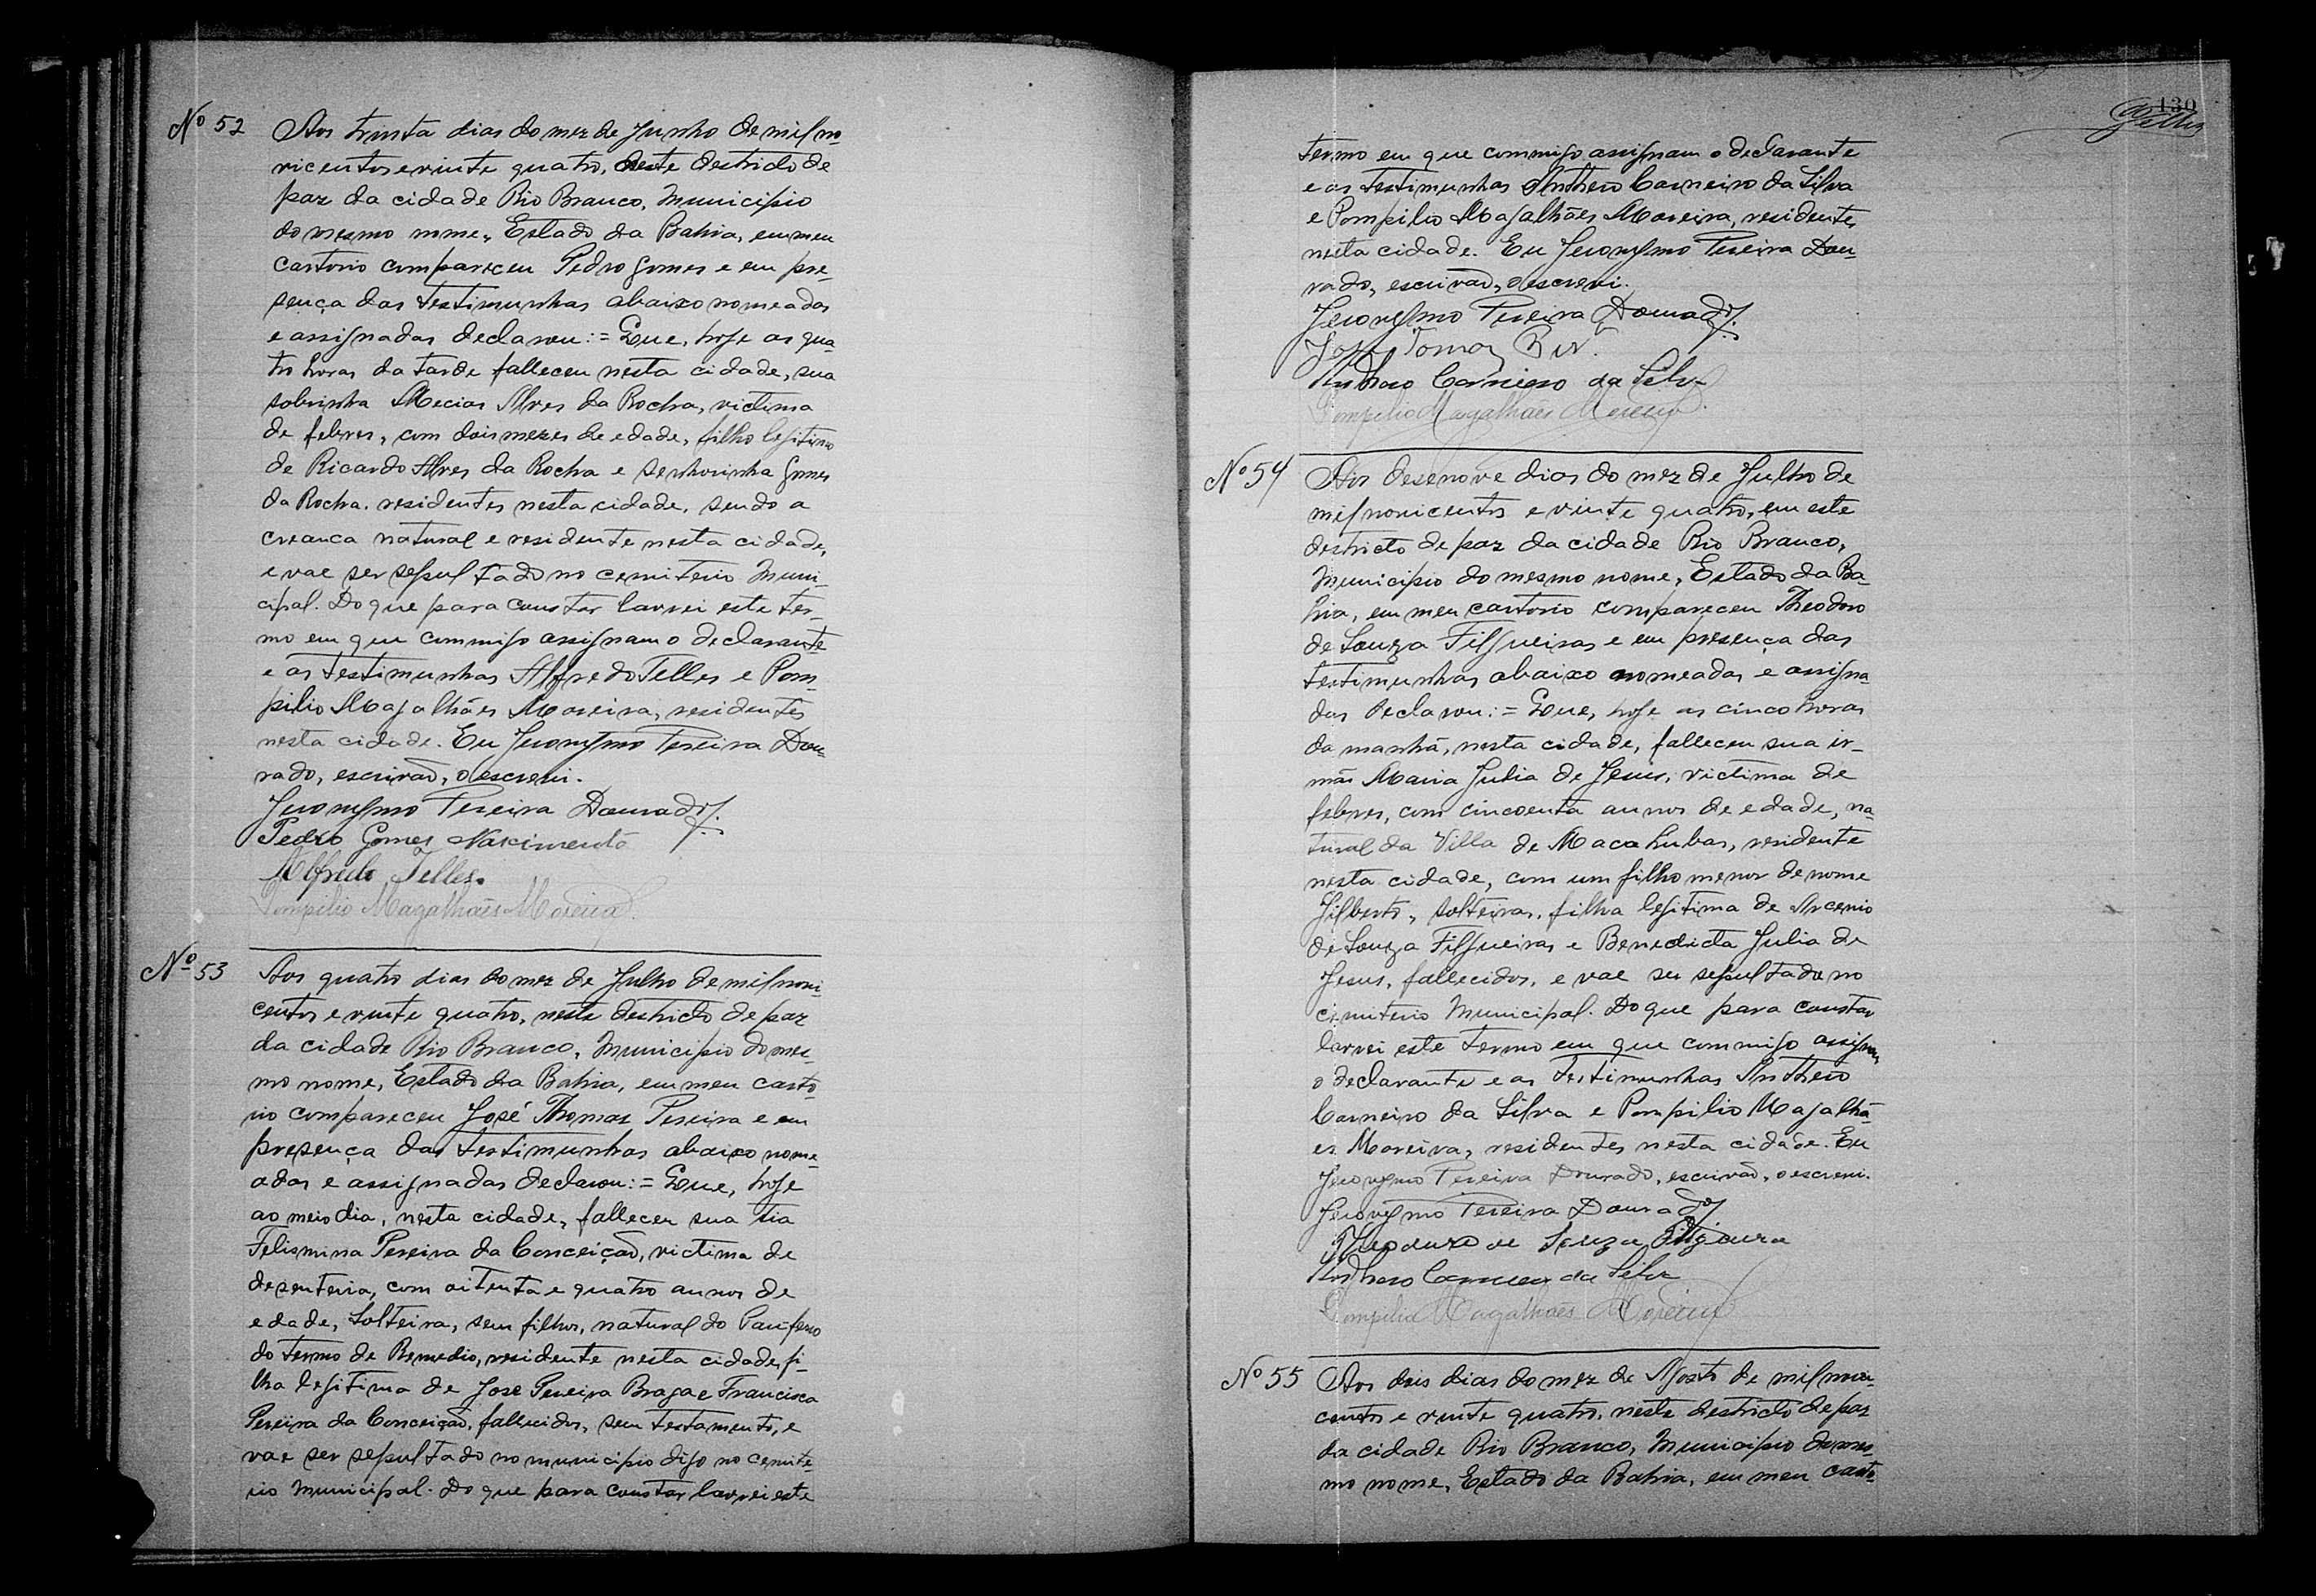 Nº 52 Aos trinta dias do mez de Junho de mil no-
vicentos e vinte quatro, neste destricto de
paz da cidade Rio Branco, Municipio
do mesmo nome, Estado da Bahia, em meu
cartorio compareceu Pedro Gomes e em pre-
sença das testimunhas abaixo nomeadas
e assignadas declarou: = Que, hoje as qua-
tro horas da tarde falleceu nesta cidade, sua
sobrinha Mecias Alves da Rocha, victima
de febres, com dois mezes de edade, filho legitimo
de Ricardo Alves da Rocha e Senhorinha Gomes
da Rocha, residentes nesta cidade, sendo a
creanca natural e residente nesta cidade,
e vae ser sepultado no cemiterio Muni-
cipal. Do que para constar lavrei este ter-
mo em que commigo assignam o declarante
e as testimunhas Alfredo Telles e Pom-
pilio Magalhães Moreira, residentes
nesta cidade. Eu Jeronymo Pereira Dou-
rado, escrivão, o escrevi.
Jeronymo Pereira Dourado
Pedro Gomes Nascimento
Alfredo Telles.
Pompilio Magalhães Moreira.
Nº 53 Aos quatro dias do mez de Julho de mil novi-
centos e vinte quatro, neste destricto de paz
da cidade Rio Branco, Municipio do mes-
mo nome, Estado da Bahia, em meu carto-
rio compareceu José Thomaz Pereira e em
presença das testimunhas abaixo nome-
adas e assignadas declarou: = Que, hoje
ao meio dia, nesta cidade, falleceu sua tia
Felismina Pereira da Conceição, victima de
desenteria, com oitenta e quatro annos de
edade, solteira, sem filhos, natural do Pau-ferro
do termo de Remedio, residente nesta cidade, fi-
lha legitima de Jose Pereira Braga e Francisca
Pereira da Conceição, fallecidos, sem testamento, e
vae ser sepultado no municipio digo no cemite-
rio Municipal. Do que para constar lavrei este
130
Telles
termo em que commigo assignam o declarante
e as testimunhas Anthero Carneiro da Silva
e Pompilio Magalhães Moreira, residentes
nesta cidade. Eu Jeronymo Pereira Dou-
rado, escrivão, o escrevi.
Jeronymo Pereira Dourado
José Tomaz
Anthero Carneiro da Silva
Pompilio Magalhães Moreira.
Nº 54 Aos desenove dias do mez de Julho de
mil novicentos e vinte quatro, em este
destricto de paz da cidade Rio Branco,
Municipio do mesmo nome, Estado da Ba-
hia, em meu cartorio compareceu Theodoro
de Souza Filgueiras e em presença das
testimunhas abaixo nomeadas e assigna-
das declarou: = Que, hoje as cinco horas
da manhã, nesta cidade, falleceu sua ir-
mãi Maria Julia de Jesus, victima de
febres, com cincoenta annos de edade, na-
tural da Villa de Macahubas, residente
nesta cidade, com um filho menor de nome
Gilberto, solteiras, filha legitima de Arcenio
de Souza Filgueiras e Benedicta Julia de
Jesus, fallecidos, e vae ser sepultado no
cimiterio Municipal. Do que para constar
lavrei este termo em que commigo assignam
o declarante e as testimunhas Anthero
Carneiro da Silva e Pompilio Magalhã-
es Moreira, residentes nesta cidade. Eu
Jeronymo Pereira Dourado, escrivão, o escrevi.
Jeronymo Pereira Dourado
Theodoro de Souza Filgueira
Anthero Carneiro da Silva
Pompilio Magalhães Moreira
Nº 55 Aos dois dias do mez de Agosto de mil novi-
centos e vinte quatro, neste destricto de paz
da cidade Rio Branco, Municipio do mes-
mo nome, Estado da Bahia, em meu carto-